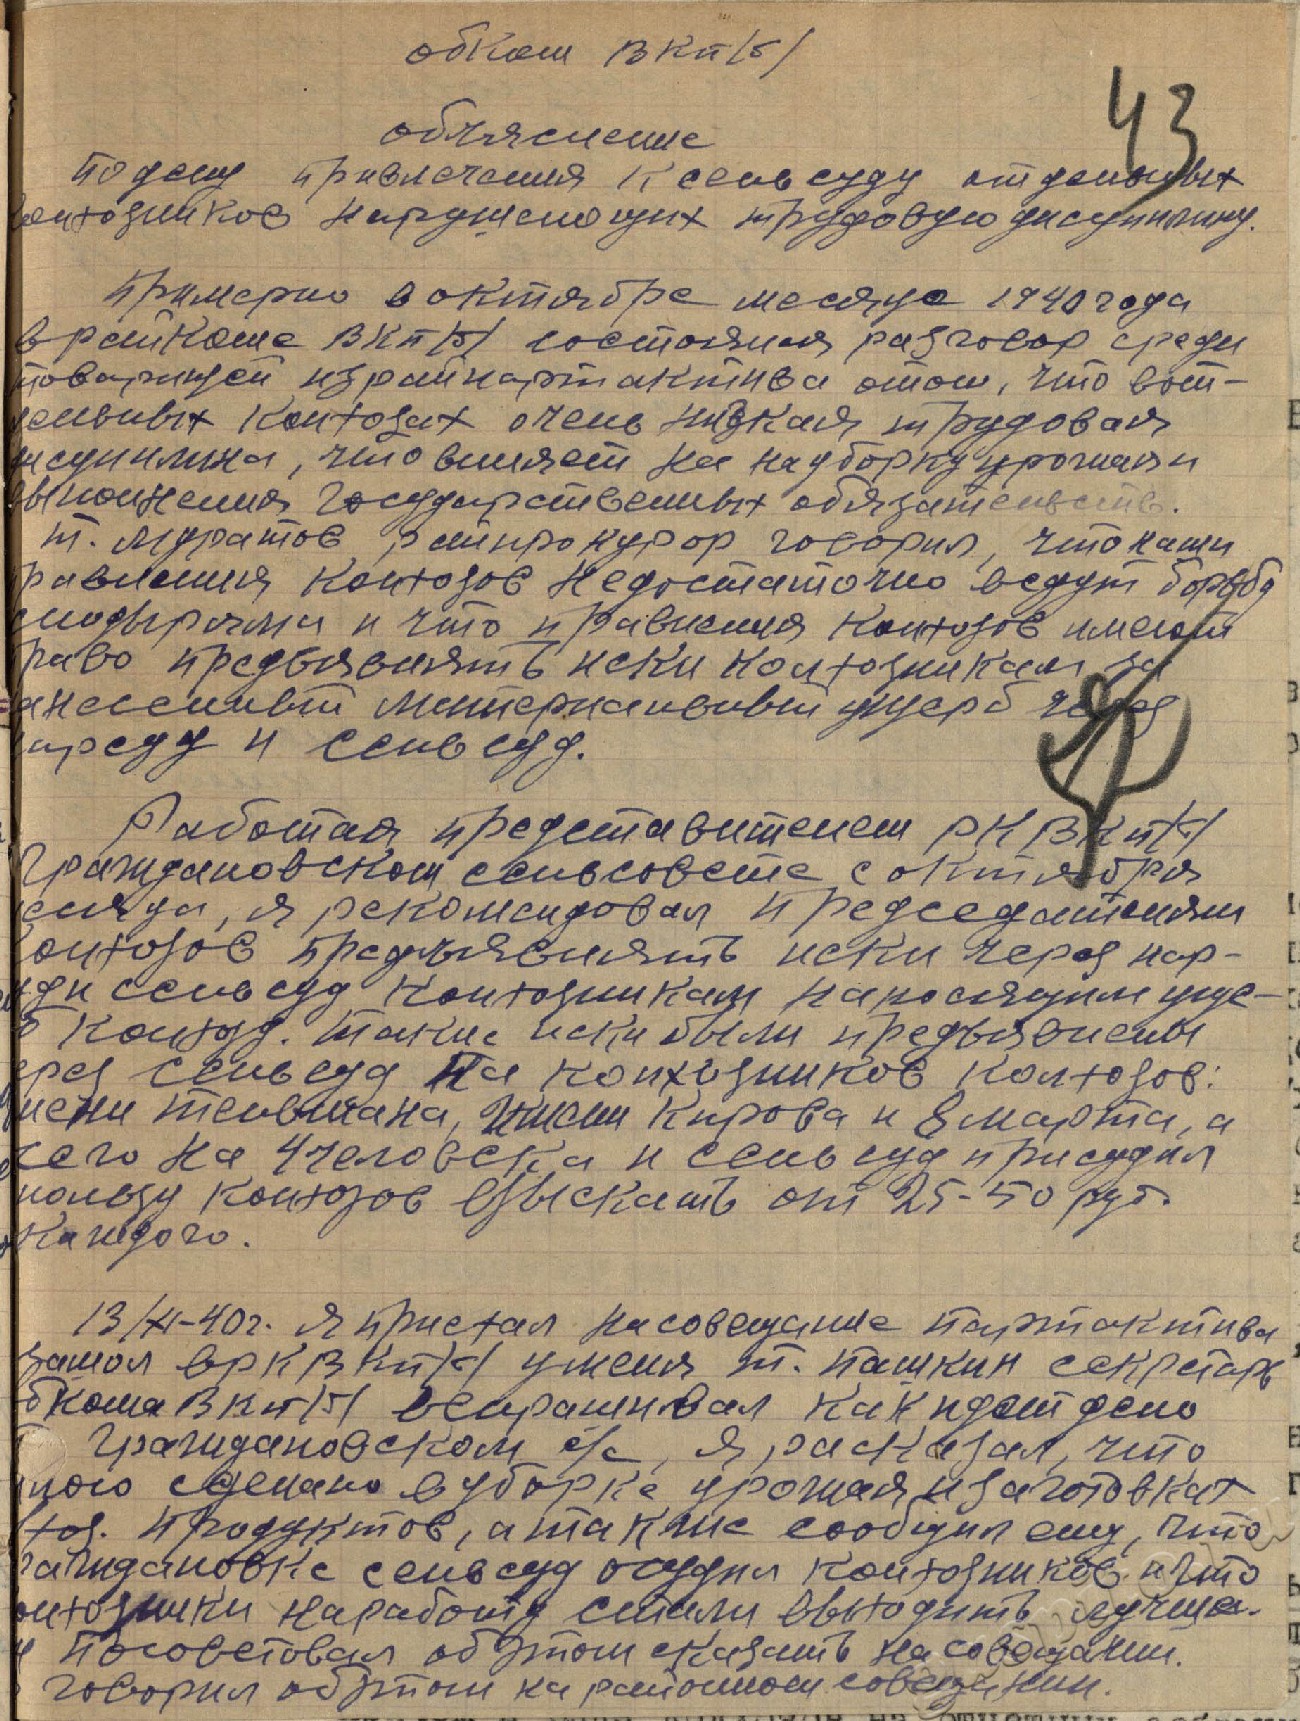 обком ВКп/б/
43
объяснение
по делу привлечения к сельсуду отдельных
колхозников нарушающих трудовую дисциплину.
Примерно в октябре месяце 1940 года
в райкоме ВКп/б/ состоялся разговор среди
товарищей из райпартактива о том, что в от-
дельных колхозах очень низкая трудовая
дисциплина, что влияет на уборку урожая и
выполнения государственных обязательств.
т. Муратов райпрокурор говорил, что наши
правления колхозов недостаточно ведут борьбу
с лодырями и что правления колхозов имеют
право предъявлять иски колхозникам за
нанесенный материальный ущерб через
нарсуд и сельсуд.
Работая представителем РК ВКп/б/
Граждановском сельсовете с октября
месяца, я рекомендовал председателям
колхозов предъявлять иски через нар-
суд и сельсуд колхозникам наносящим уще-
б колхозу. такие иски были предъявлены
через сельсуд на колхозников колхозов:
имени тельмана, имени Кирова и 8 марта, а
всего на 4 человека и сельсуд присудил
пользу колхозов взыскать от 25-50 руб.
каждого.
13/XI-40г. я приехал на совещание партактива
зашол в РК ВКп/б/ у меня т. Пашкин секретарь
обкома ВКп/б/ вспрашивал как идет дело
Граждановском с/с, я расказал, что
много сделано в уборке урожая и заготовках
с/хоз. продуктов, а также сообщил ему, что
Граждановке сельсуд осудил колхозников и что
колхозники на работу стали выходить лучше.
посоветовал об этом сказать на совещании.
говорил об этом на районном совещании.